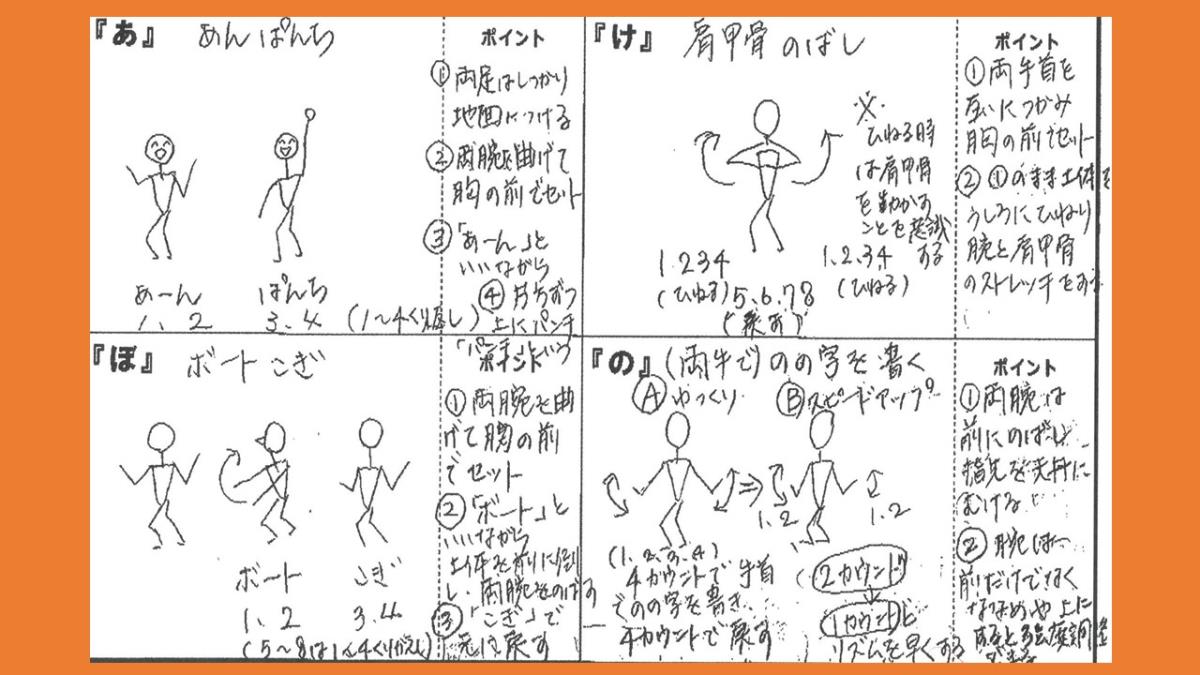 『あ』 めんぱんち
ポイント
① 両足はしっかり
地面につける
② 両腕を曲げて
胸の前でセット
③ 「あーん」と
いいながら
④ 片方ずつ
上にパンチ
「パンチ」という
あーん ぱんち
1. 2 3.4 (1〜4くり返し)
『け』 肩甲骨のばし
ポイント
① 両手首を
互いにつかみ
胸の前でセット
② ①のまま上体を
うしろにひねり
腕と肩甲骨
のストレッチをする
※
ひねる時
は肩甲骨
を動かす
ことを意識
する
1.2.3.4
(ひねる)
5.6.7.8
(戻す)
1.2.3.4
(ひねる)
『ぼ』 ボートこぎ
ポイント
① 両腕を曲
げて胸の前
でセット
② 「ボート」と
いいながら
上体を前に倒
し、両腕をのばす
③ 「こぎ」で
元に戻す
ボート こぎ
1.2 3.4
(5〜8は1〜4くりかえし)
『の』 (両手で)のの字を書く
Ⓐ ゆっくり Ⓑ スピードアップ
ポイント
① 両腕は
前にのばし
指先を天井に
むける
② 腕は
前だけでなく
ななめや上に
すると強度調整
できる
1.2 1.2
(1.2.3.4)
4カウントで手首
でのの字を書き、
4カウントで戻す
(2カウント
↓
1カウントと
リズムを早くする